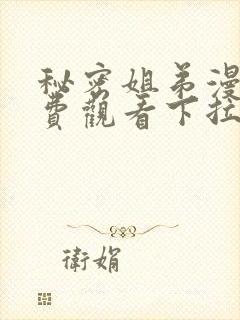 秘密姐弟漫
費觀看下拉
衛娟